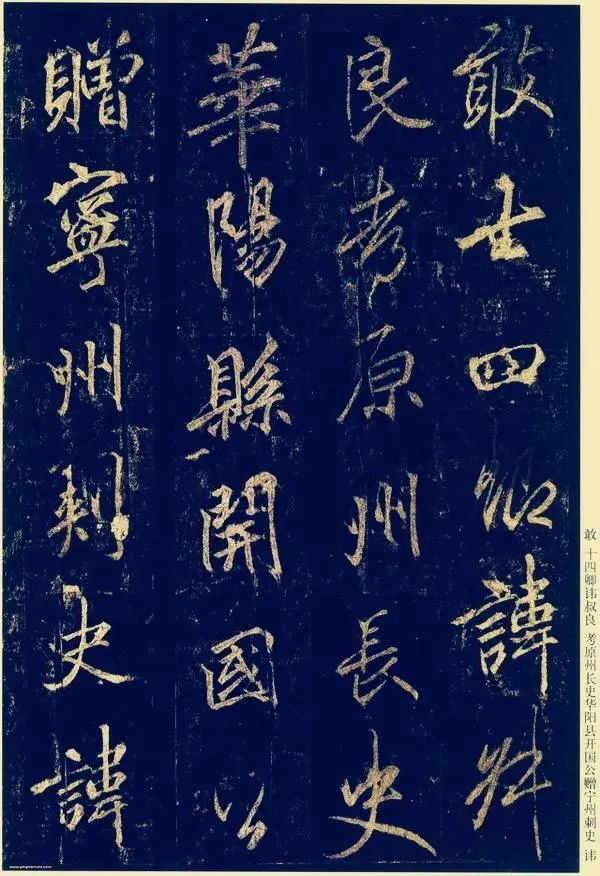 敢十四卿諱叔
良考原州長史
華陽縣開國公
贈寧州刺史諱
敢 十四卿讳叔良 考原州长史华阳县开国公赠宁州刺史 讳